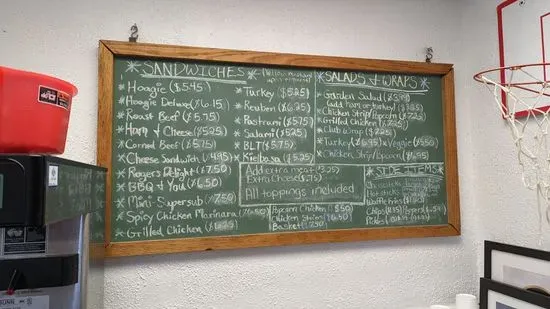 SANDWICHES
* Hoagie ($5.45)
* Hoagie Deluxe ($6.15)
* Roast Beef ($5.75)
* Ham & Cheese ($5.25)
* Corned Beef ($5.75)
* Cheese Sandwich ($4.95)
* Rogers Delight ($7.50)
* BBQ & You ($6.50)
* Mini Supersub ($7.50)
* Spicy Chicken Marinara ($6.50)
* Grilled Chicken
* Turkey ($5.25)
* Reuben ($6.25)
* Pastrami ($5.75)
* Salami ($5.25)
* BLT ($5.50)
* Kielbasa ($5.25)
Add extra meat ($3.25)
Extra Cheese ($.75)
All toppings included
Popcorn Chicken
Chicken Strips ($6.50)
Basket ($7.50)
* SALADS & WRAPS *
* Garden Salad
(add ham or turkey)
* Chicken Strip/Popcorn ($7.25)
* Grilled Chicken ($7.25)
* Club Wrap ($7.25)
* Turkey ($6.95) * Veggie ($5.50)
* Chicken Strip/Popcorn ($6.95)
* SIDE ITEMS *
Hot sticks
Waffle fries
Chips Peppers
Pickles